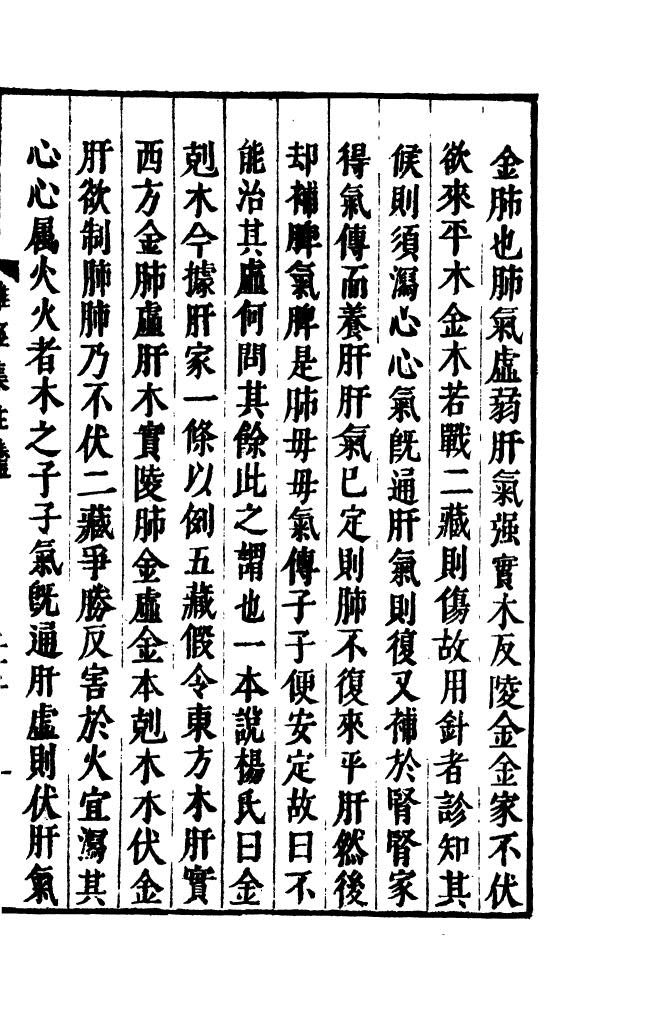 金肺也肺氣虛弱肝氣强實木反陵金金家不伏
欲來平木金木若戰二藏則傷故用針者診知其
候則須瀉心心氣旣通肝氣則復又補於腎腎家
得氣傳而養肝肝氣已定則肺不復來平肝然後
却補脾氣脾是肺母母氣傳子子便安定故曰不
能治其虛何問其餘此之謂也一本說楊氏曰金
剋木今據肝家一條以例五藏假令東方木肝實
西方金肺虛肝木實陵肺金虛金本剋木木伏金
肝欲制肺肺乃不伏二藏爭勝反害於火宜瀉其
心心属火火者木之子子氣旣通肝虛則伏肝氣
難經集註卷